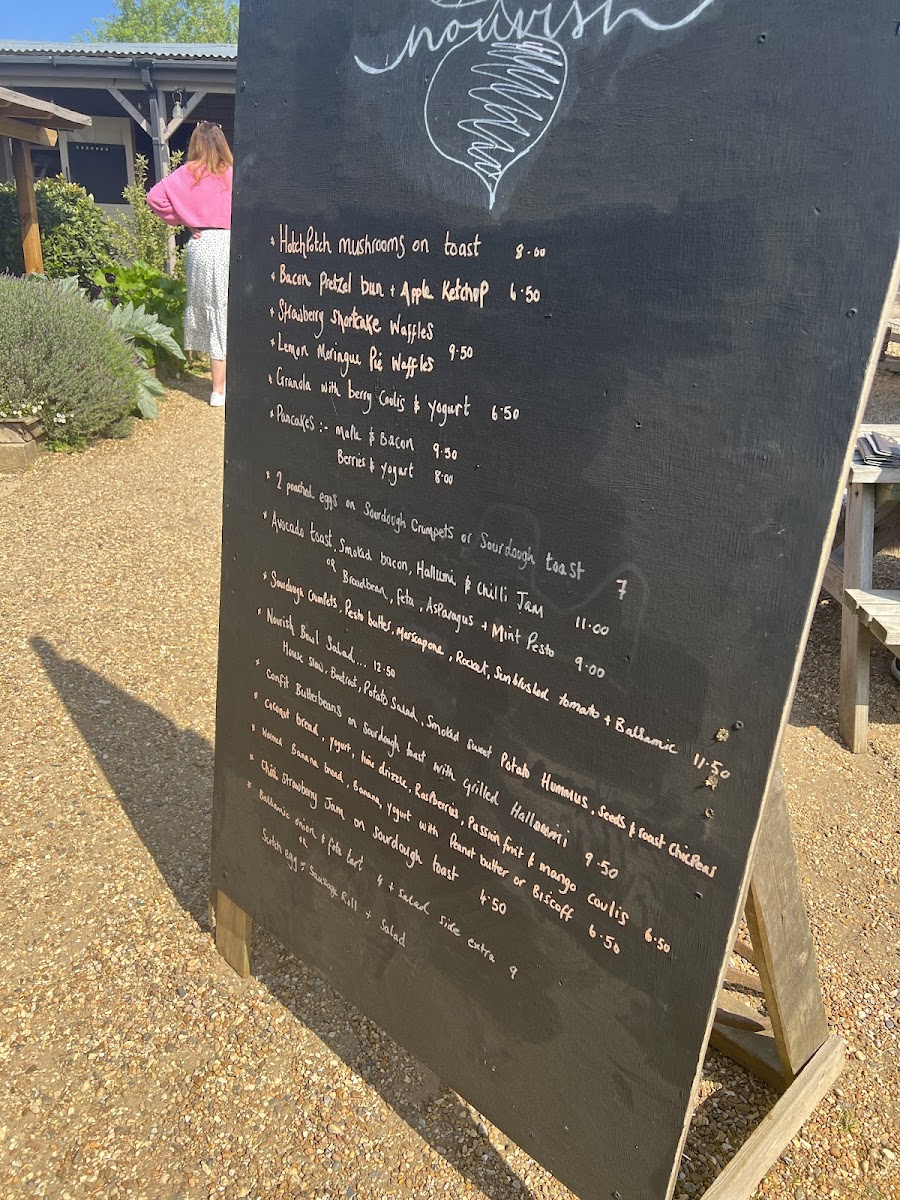 nourish
* HotchPotch mushrooms on toast 8.00
* Bacon Pretzel bun + Apple Ketchup 6.50
* Strawberry shortcake Waffles
* Lemon Meringue Pie Waffles 9.50
* Granola with berry Coulis & yogurt 6.50
* Pancakes :- Maple & Bacon 9.50
Berries & yogurt 8.00
* 2 poached eggs on Sourdough Crumpets or Sourdough toast 7
* Avocado toast, Smoked bacon, Hallumi & Chilli Jam 11.00
or Broadbean, feta, Asparagus + Mint Pesto 9.00
* Sourdough Crumpets, Pesto butter, Marscapone, Rocket, Sunblushed tomato + Balsamic 11.50
* Nourish Bowl Salad... 12.50
House slaw, Beetroot, Potato Salad, Smoked sweet Potato Hummus, Seeds & roast Chickpeas
* Confit Butterbeans on Sourdough toast with grilled Halloumi 9.50
* Coconut bread, yogurt, lime drizzle, Raspberries, Passion fruit & mango Coulis 6.50
* Warmed Banana bread, Banana, yogurt with Peanut butter or Biscoff 6.50
* Chia Strawberry Jam on sourdough toast 4.50
* Balsamic onion + feta tart 4 + Salad side extra 9
or
Scotch egg or Sausage Roll + Salad